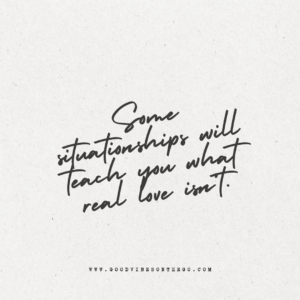 Some
situationships will
teach you what
real love isn't.
WWW.GOODVIBESONTERGO.COM